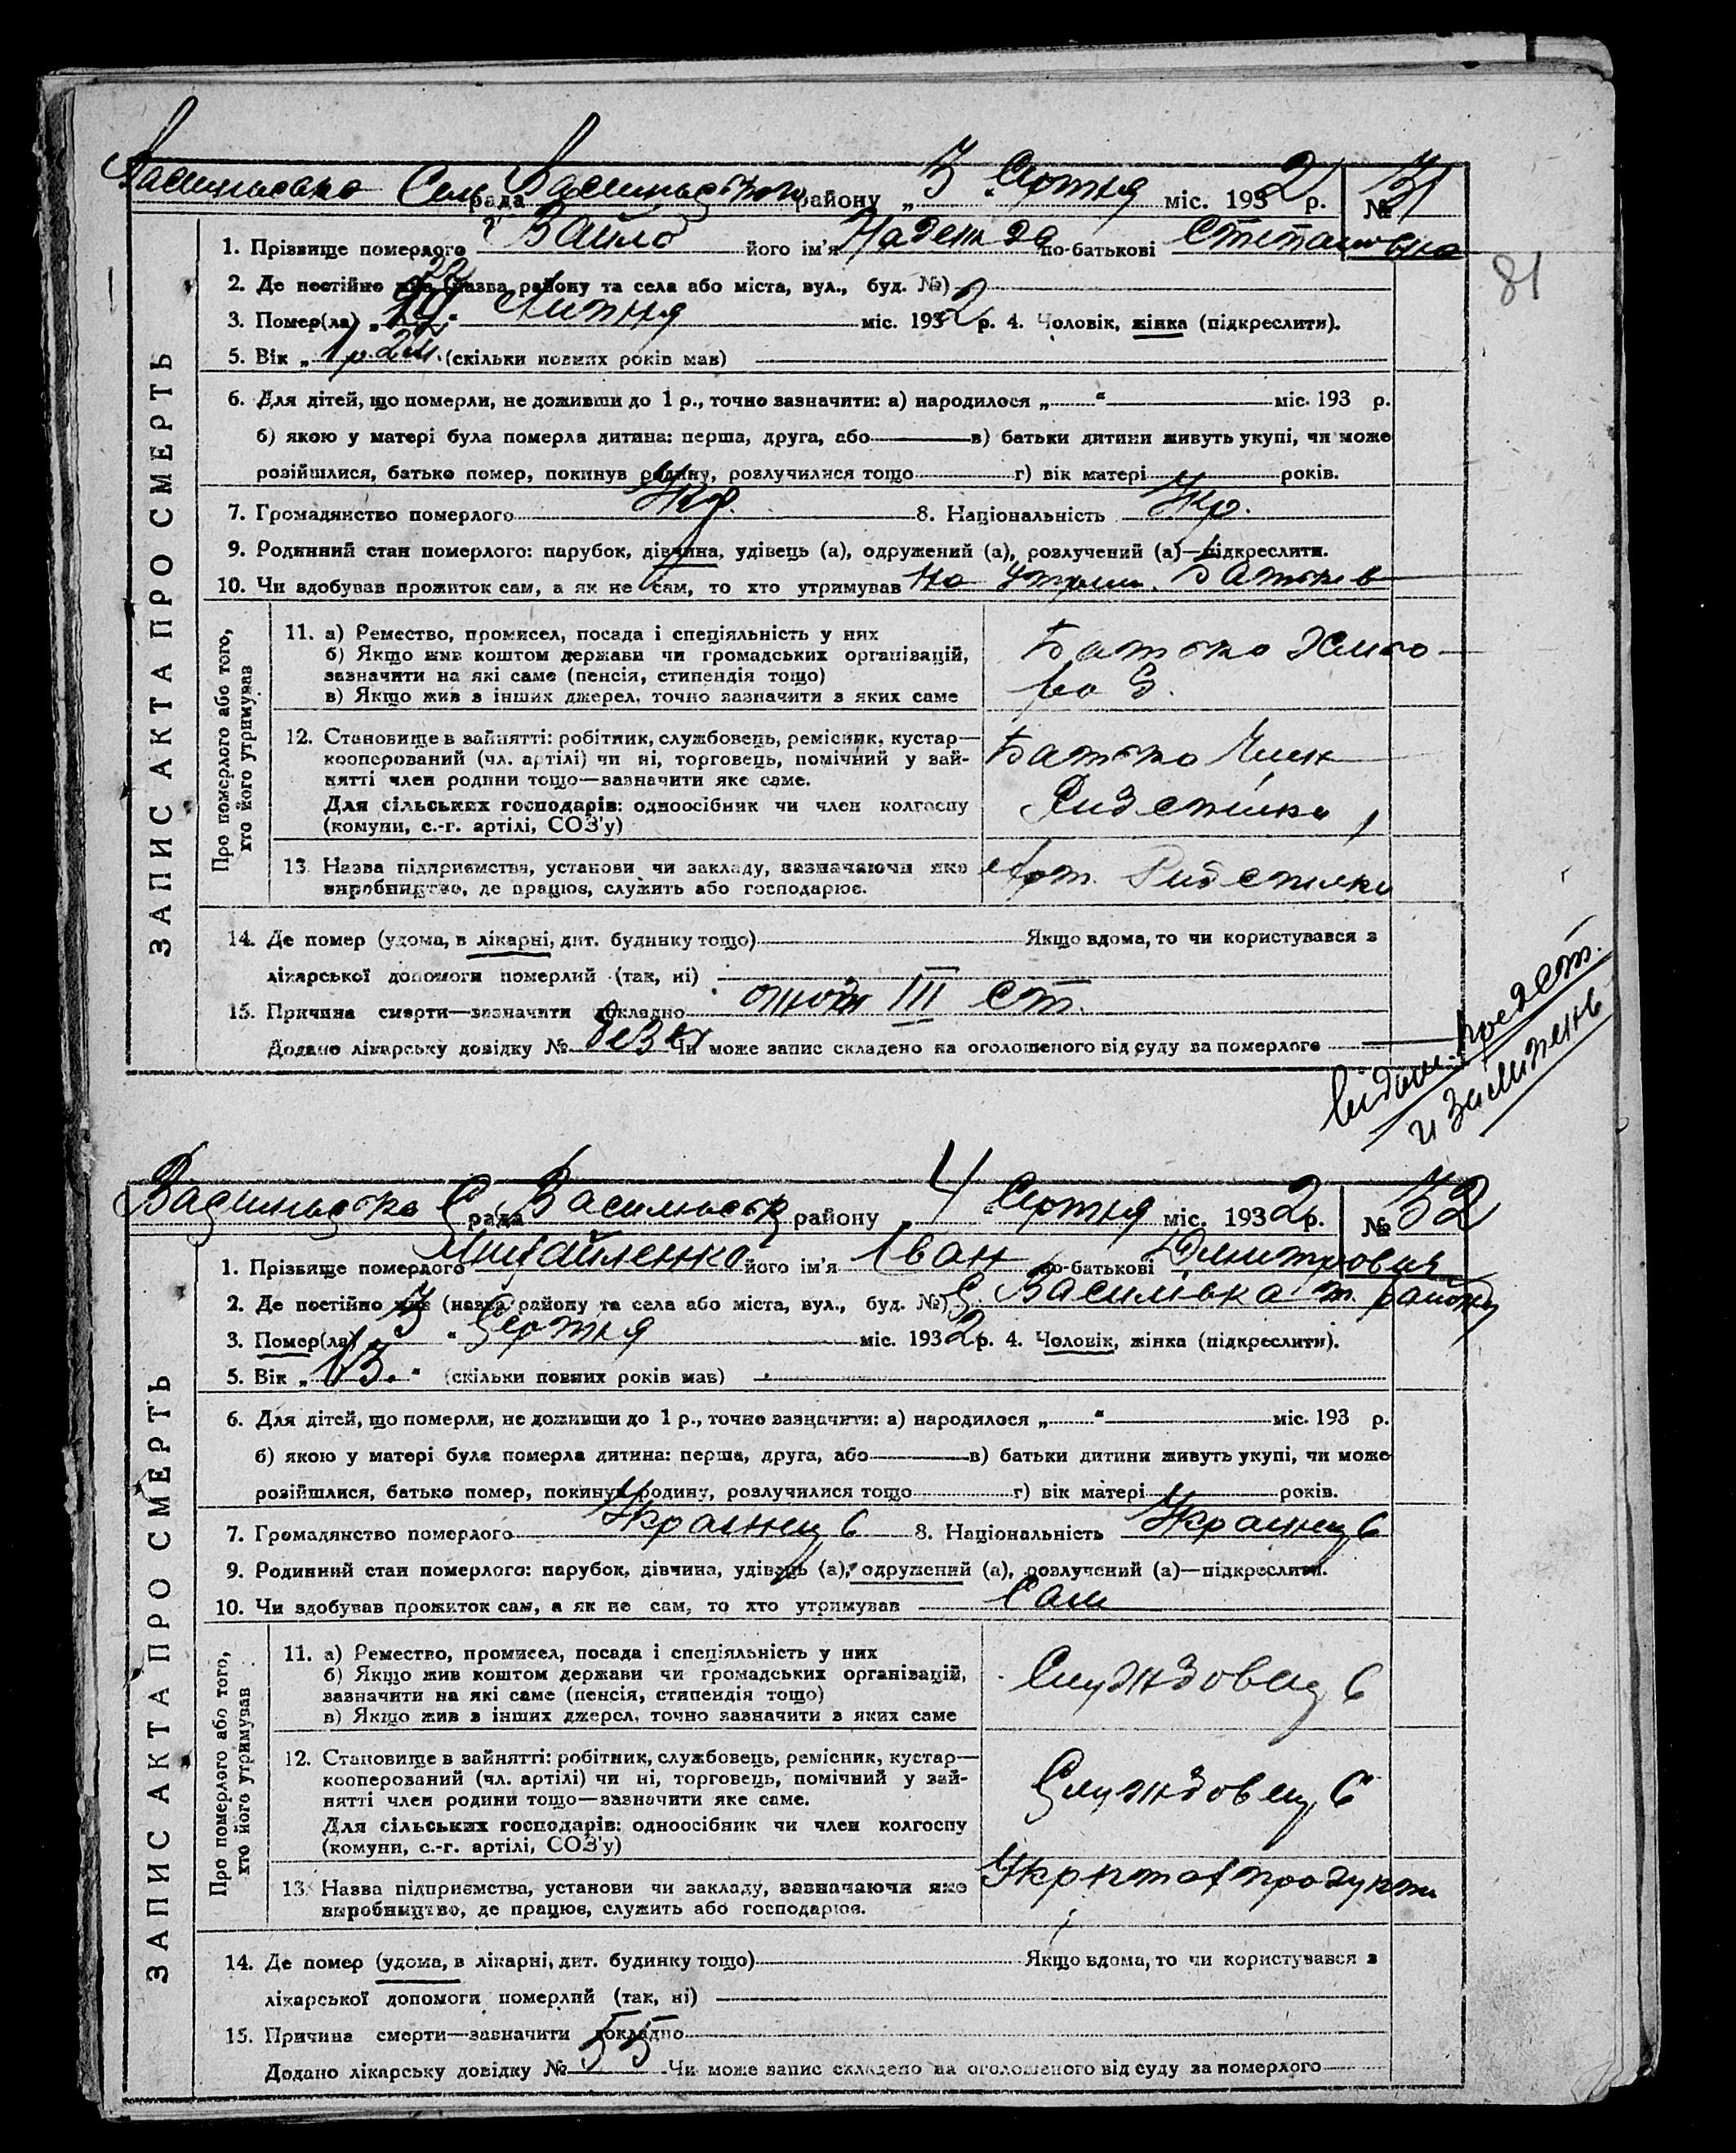 Сель рада району „3" Серпня міс. 1932 р. № 31
81
ЗАПИС АКТА ПРО СМЕРТЬ
1. Прізвище померлого Вайло його ім'я Надежда по-батькові Степановна
2. Де постійно жив (назва району та села або міста, вул., буд. №)
3. Помер(ла) „ " Липня міс. 1932 р. 4. Чоловік, жінка (підкреслити).
5. Вік „1 р. 2 м." (скільки повних років мав)
6. Для дітей, що померли, не доживши до 1 р., точно зазначити: а) народилося „ " міс. 193 р.
б) якою у матері була померла дитина: перша, друга, або в) батьки дитини живуть укупі, чи може
розійшлися, батько помер, покинув родину, розлучилися тощо г) вік матері років.
7. Громадянство померлого Укр. 8. Національність Укр.
9. Родинний стан померлого: парубок, дівчина, удівець (а), одружений (а), розлучений (а)—підкреслити.
10. Чи здобував прожиток сам, а як не сам, то хто утримував на утрим. Батьків
Про померлого або того, хто його утримував
11. а) Ремество, промисел, посада і спеціяльність у них
б) Якщо жив коштом держави чи громадських організацій,
зазначити на які саме (пенсія, стипендія тощо)
в) Якщо жив з інших джерел, точно зазначити з яких саме
Батько
12. Становище в зайнятті: робітник, службовець, ремісник, кустар—
кооперований (чл. артілі) чи ні, торговець, помічний у зай-
нятті член родини тощо—зазначити яке саме.
Для сільських господарів: одноосібник чи член колгоспу
(комуни, с.-г. артілі, СОЗ'у)
Батько Член
Ридспілки
13. Назва підприємства, установи чи закладу, зазначаючи яке
виробництво, де працює, служить або господарює.
Арт. Ридспілки
14. Де помер (удома, в лікарні, дит. будинку тощо) Якщо вдома, то чи користувався з
лікарської допомоги померлий (так, ні)
15. Причина смерти—зазначити докладно III ст.
Додано лікарську довідку № без № Чи може запис складено на оголошеного від суду за померлого
Василівська С рада Василівськ району „4" Серпня міс. 1932 р. № 32
ЗАПИС АКТА ПРО СМЕРТЬ
1. Прізвище померлого Михайленко його ім'я Іван по-батькові Дмитрович
2. Де постійно жив (назва району та села або міста, вул., буд. №) С. Василівка т. району
3. Помер(ла) „3" Серпня міс. 1932 р. 4. Чоловік, жінка (підкреслити).
5. Вік „ " (скільки повних років мав)
6. Для дітей, що померли, не доживши до 1 р., точно зазначити: а) народилося „ " міс. 193 р.
б) якою у матері була померла дитина: перша, друга, або в) батьки дитини живуть укупі, чи може
розійшлися, батько помер, покинув родину, розлучилися тощо г) вік матері років.
7. Громадянство померлого Українець 8. Національність Українець
9. Родинний стан померлого: парубок, дівчина, удівець (а), одружений (а), розлучений (а)—підкреслити.
10. Чи здобував прожиток сам, а як не сам, то хто утримував Сам
Про померлого або того, хто його утримував
11. а) Ремество, промисел, посада і спеціяльність у них
б) Якщо жив коштом держави чи громадських організацій,
зазначити на які саме (пенсія, стипендія тощо)
в) Якщо жив з інших джерел, точно зазначити з яких саме
Службовець
12. Становище в зайнятті: робітник, службовець, ремісник, кустар—
кооперований (чл. артілі) чи ні, торговець, помічний у зай-
нятті член родини тощо—зазначити яке саме.
Для сільських господарів: одноосібник чи член колгоспу
(комуни, с.-г. артілі, СОЗ'у)
Службовець
13. Назва підприємства, установи чи закладу, зазначаючи яке
виробництво, де працює, служить або господарює.
14. Де помер (удома, в лікарні, дит. будинку тощо) Якщо вдома, то чи користувався з
лікарської допомоги померлий (так, ні)
15. Причина смерти—зазначити докладно
Додано лікарську довідку № 55 Чи може запис складено на оголошеного від суду за померлого